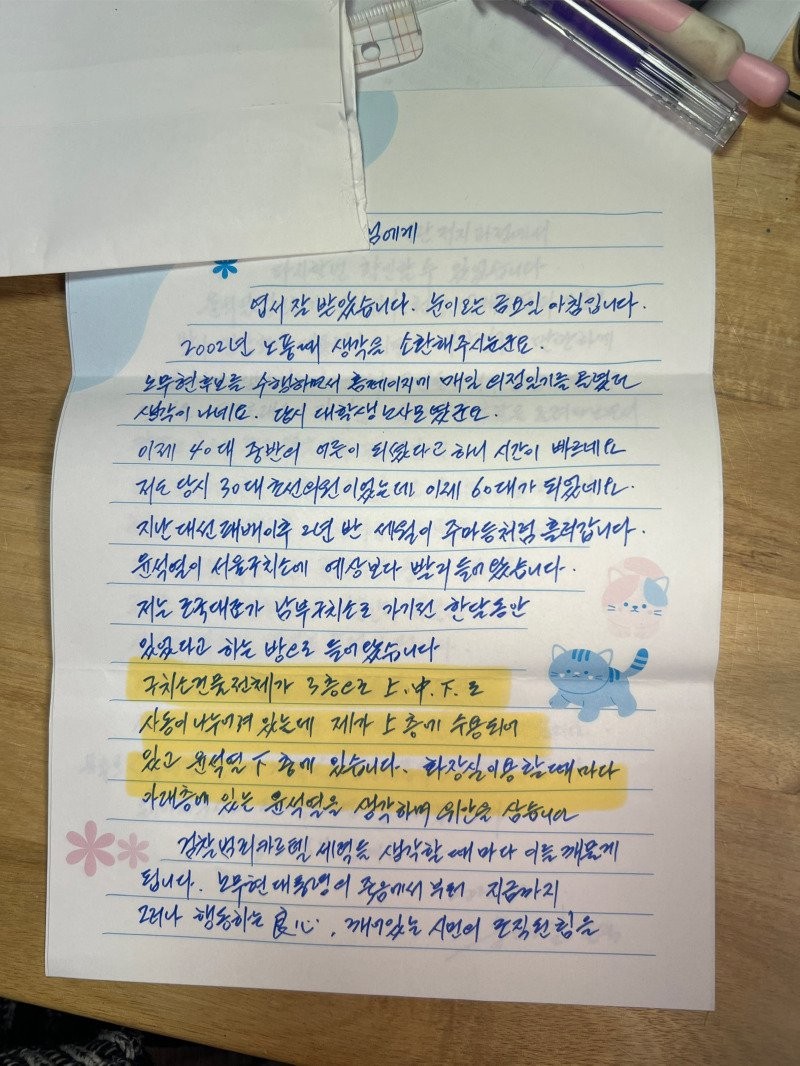 님에게
엽서 잘 받았습니다. 눈이오는 금요일 아침입니다.
2002년 노풍때 생각을 소환해주시는군요.
노무현후보를 수행하면서 홈페이지에 매일 의정일기를 올렸던
생각이 나네요. 당시 대학생 노사모였군요.
이제 40대 중반의 어른이 되셨다고 하니 시간이 빠르네요
저도 당시 30대 초선의원이었는데 이제 60대가 되었네요.
지난 대선 패배이후 2년 반 세월이 주마등처럼 흘러갑니다.
윤석열이 서울구치소에 예상보다 빨리 들어왔습니다.
저는 조국대표가 남부구치소로 가기전 한달동안
있었다고 하는 방으로 들어왔습니다
구치소건물전체가 3층으로 上.中.下.로
사동이 나누어져 있는데 제가 上층에 수용되어
있고 윤석열 下층에 있습니다. 화장실이용할때마다
아래층에 있는 윤석열을 생각하며 위안을 삼습니다
검찰범죄카르텔 세력을 생각할 때마다 이를 깨물게
됩니다. 노무현 대통령의 죽음에서부터 지금까지
그러나 행동하는 良心, 깨어있는 시민의 조직된힘을